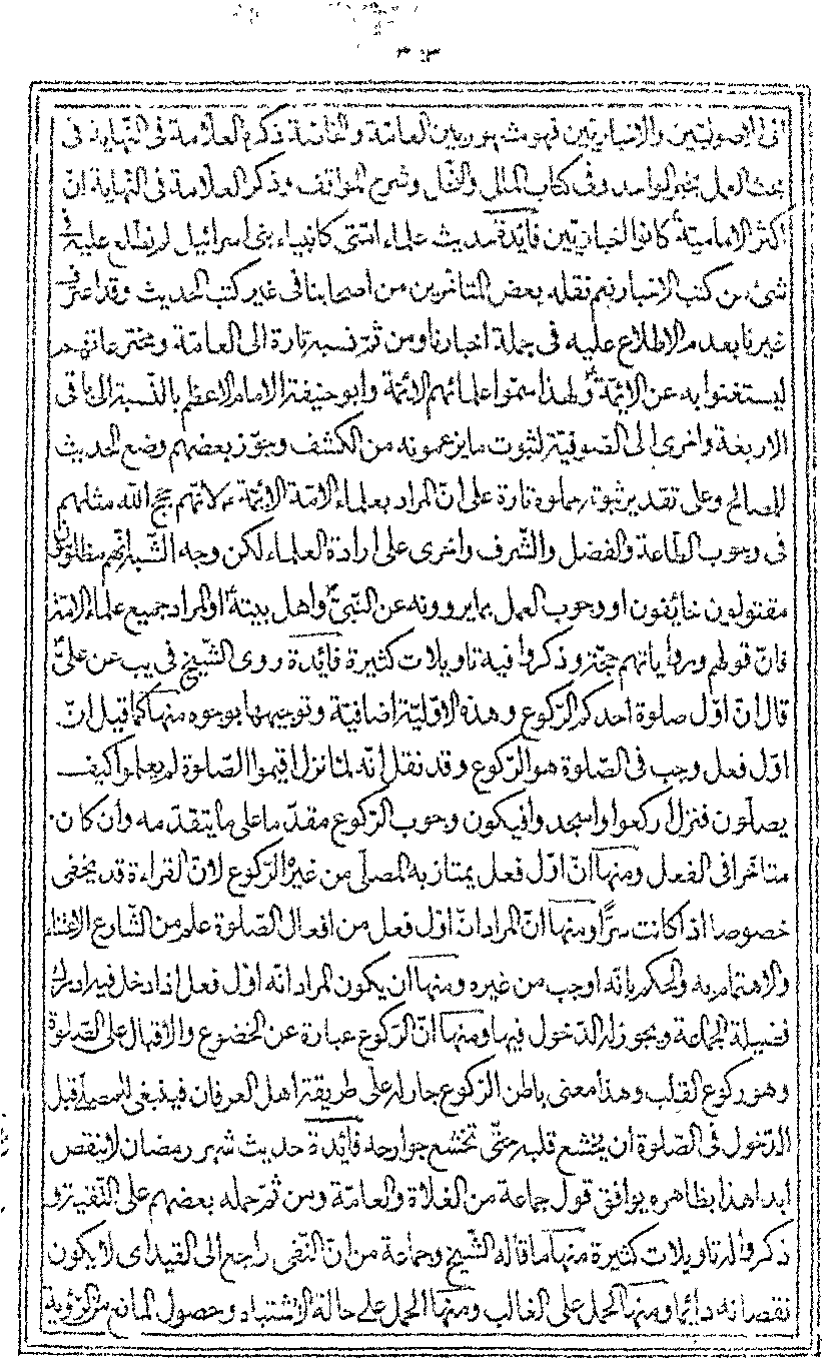 ٣٠٣
الى الاصوليين والاخباريين فهو مشهور بين العامة والخاصة ذكره العلامة فى النهاية فى
بحث العمل بخبر الواحد وفى كتاب الملل والنحل وشرح المواقف وذكر العلامة فى النهاية انّ
اكثر الامامية كانوا اخباريّين فائدة حديث علماء امتى كانبياء بنى اسرائيل لم نطلع عليه فى
شئ من كتب الاخبار نعم نقله بعض المتاخرين من اصحابنا فى غير كتب الحديث وقد اعترف
غيرنا بعدم الاطلاع عليه فى جملة اخبارنا ومن ثمّ نسبه تارة الى العامّة ومخترعاتهم
ليستغنوا به عن الائمّة ولهذا سمّوا علمائهم الائمّة وابو حنيفة الامام الاعظم بالنّسبة الى باقى
الاربعة واخرى الى الصّوفيّة لثبوت ما يزعمونه من الكشف وجوّز بعضهم وضع الحديث
للمصالح وعلى تقدير ثبوته حملوه تارة على انّ المراد بعلماء الامّة الائمّة لانّهم حجج الله مثلهم
فى وجوب الطّاعة والفضل والشّرف واخرى على ارادة العلماء لكن وجه الشّبه انّهم مظلومون
مقتولون خائفون او وجوب العمل بما يروونه عن النّبىّ واهل بيته او المراد جميع علماء الامّة
فانّ قولهم ورواياتهم حجّة وذكروا فيه تاويلات كثيرة فائدة روى الشّيخ فى يب عن علىّ
قال انّ اوّل صلوة احدكم الرّكوع وهذه الاوّليّة اضافيّة وتوجيهها بوجوه منها كما قيل انّ
اوّل فعل وجب فى الصّلوة هو الرّكوع وقد نقل انّه لمّا نزل اقيموا الصّلوة لم يعلموا كيف
يصلّون فنزل اركعوا واسجدوا فيكون وجوب الرّكوع مقدّما على ما يتقدّمه وان كان
متاخّرا فى الفعل ومنها انّ اوّل فعل يمتاز به المصلّى من غيره الرّكوع لانّ القراءة قد تخفى
خصوصا اذا كانت سرًّا ومنها انّ المراد انّ اوّل فعل من افعال الصّلوة علم من الشّارع الاعتناء
والاهتمام به والحكم بانّه اوجب من غيره ومنها ان يكون المراد انّه اوّل فعل اذا دخل فيه ادرك
فضيلة الجماعة ويجوز له الدّخول فيها ومنها انّ الرّكوع عبارة عن الخضوع والاقبال على الصّلوة
وهو ركوع القلب وهذا معنى باطن الرّكوع جار له على طريقة اهل العرفان فينبغى للمصلّى قبل
الدّخول فى الصّلوة ان يخشع قلبه حتّى تخشع جوارحه فائدة حديث شهر رمضان لا ينقص
ابدا هذا بظاهره يوافق قول جماعة من الغلاة والعامّة ومن ثمّ حمله بعضهم على التّقيّة و
ذكروا له تاويلات كثيرة منها ما قاله الشّيخ وجماعة من انّ النّفى راجع الى القيد اى لا يكون
نقصانه دائما ومنها الحمل على الغالب ومنها الحمل على حالة الاشتباه وحصول المانع من الرّؤية